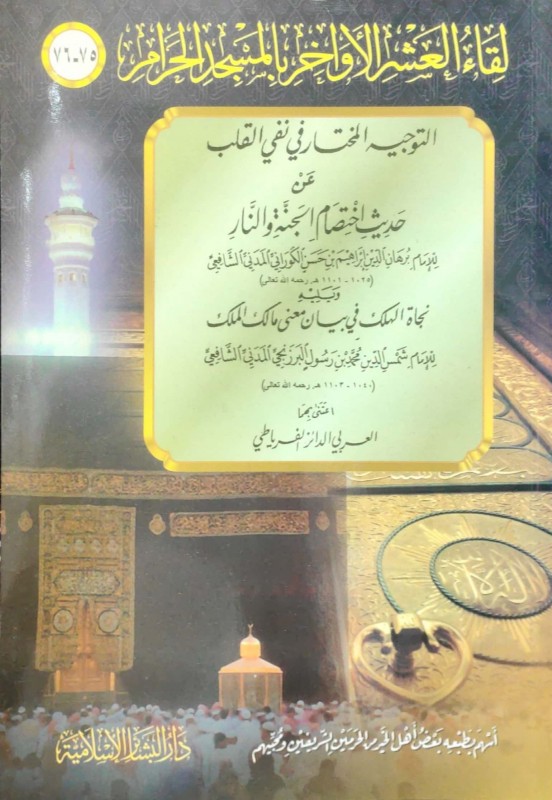 لقاء العشر الأواخر بالمسجد الحرام
٧٥-٧٦
التوجيه المختار في نفي القلب
عن
حديث اختصام الجنة والنار
للإمام برهان الدين إبراهيم بن حسن الكوراني المدني الشافعي
(١٠٢٥ - ١١٠١ هـ رحمه الله تعالى)
ويليه
نجاة الهلك في بيان معنى مالك الملك
للإمام شمس الدين محمد بن رسول البرزنجي المدني الشافعي
(١٠٤٠ - ١١٠٣ هـ رحمه الله تعالى)
اعتنى بهما
العربي الدائز الفرياطي
أسهم بطبعه بعض أهل الخير من الحرمين الشريفين ومحبيهم
دار البشائر الإسلامية